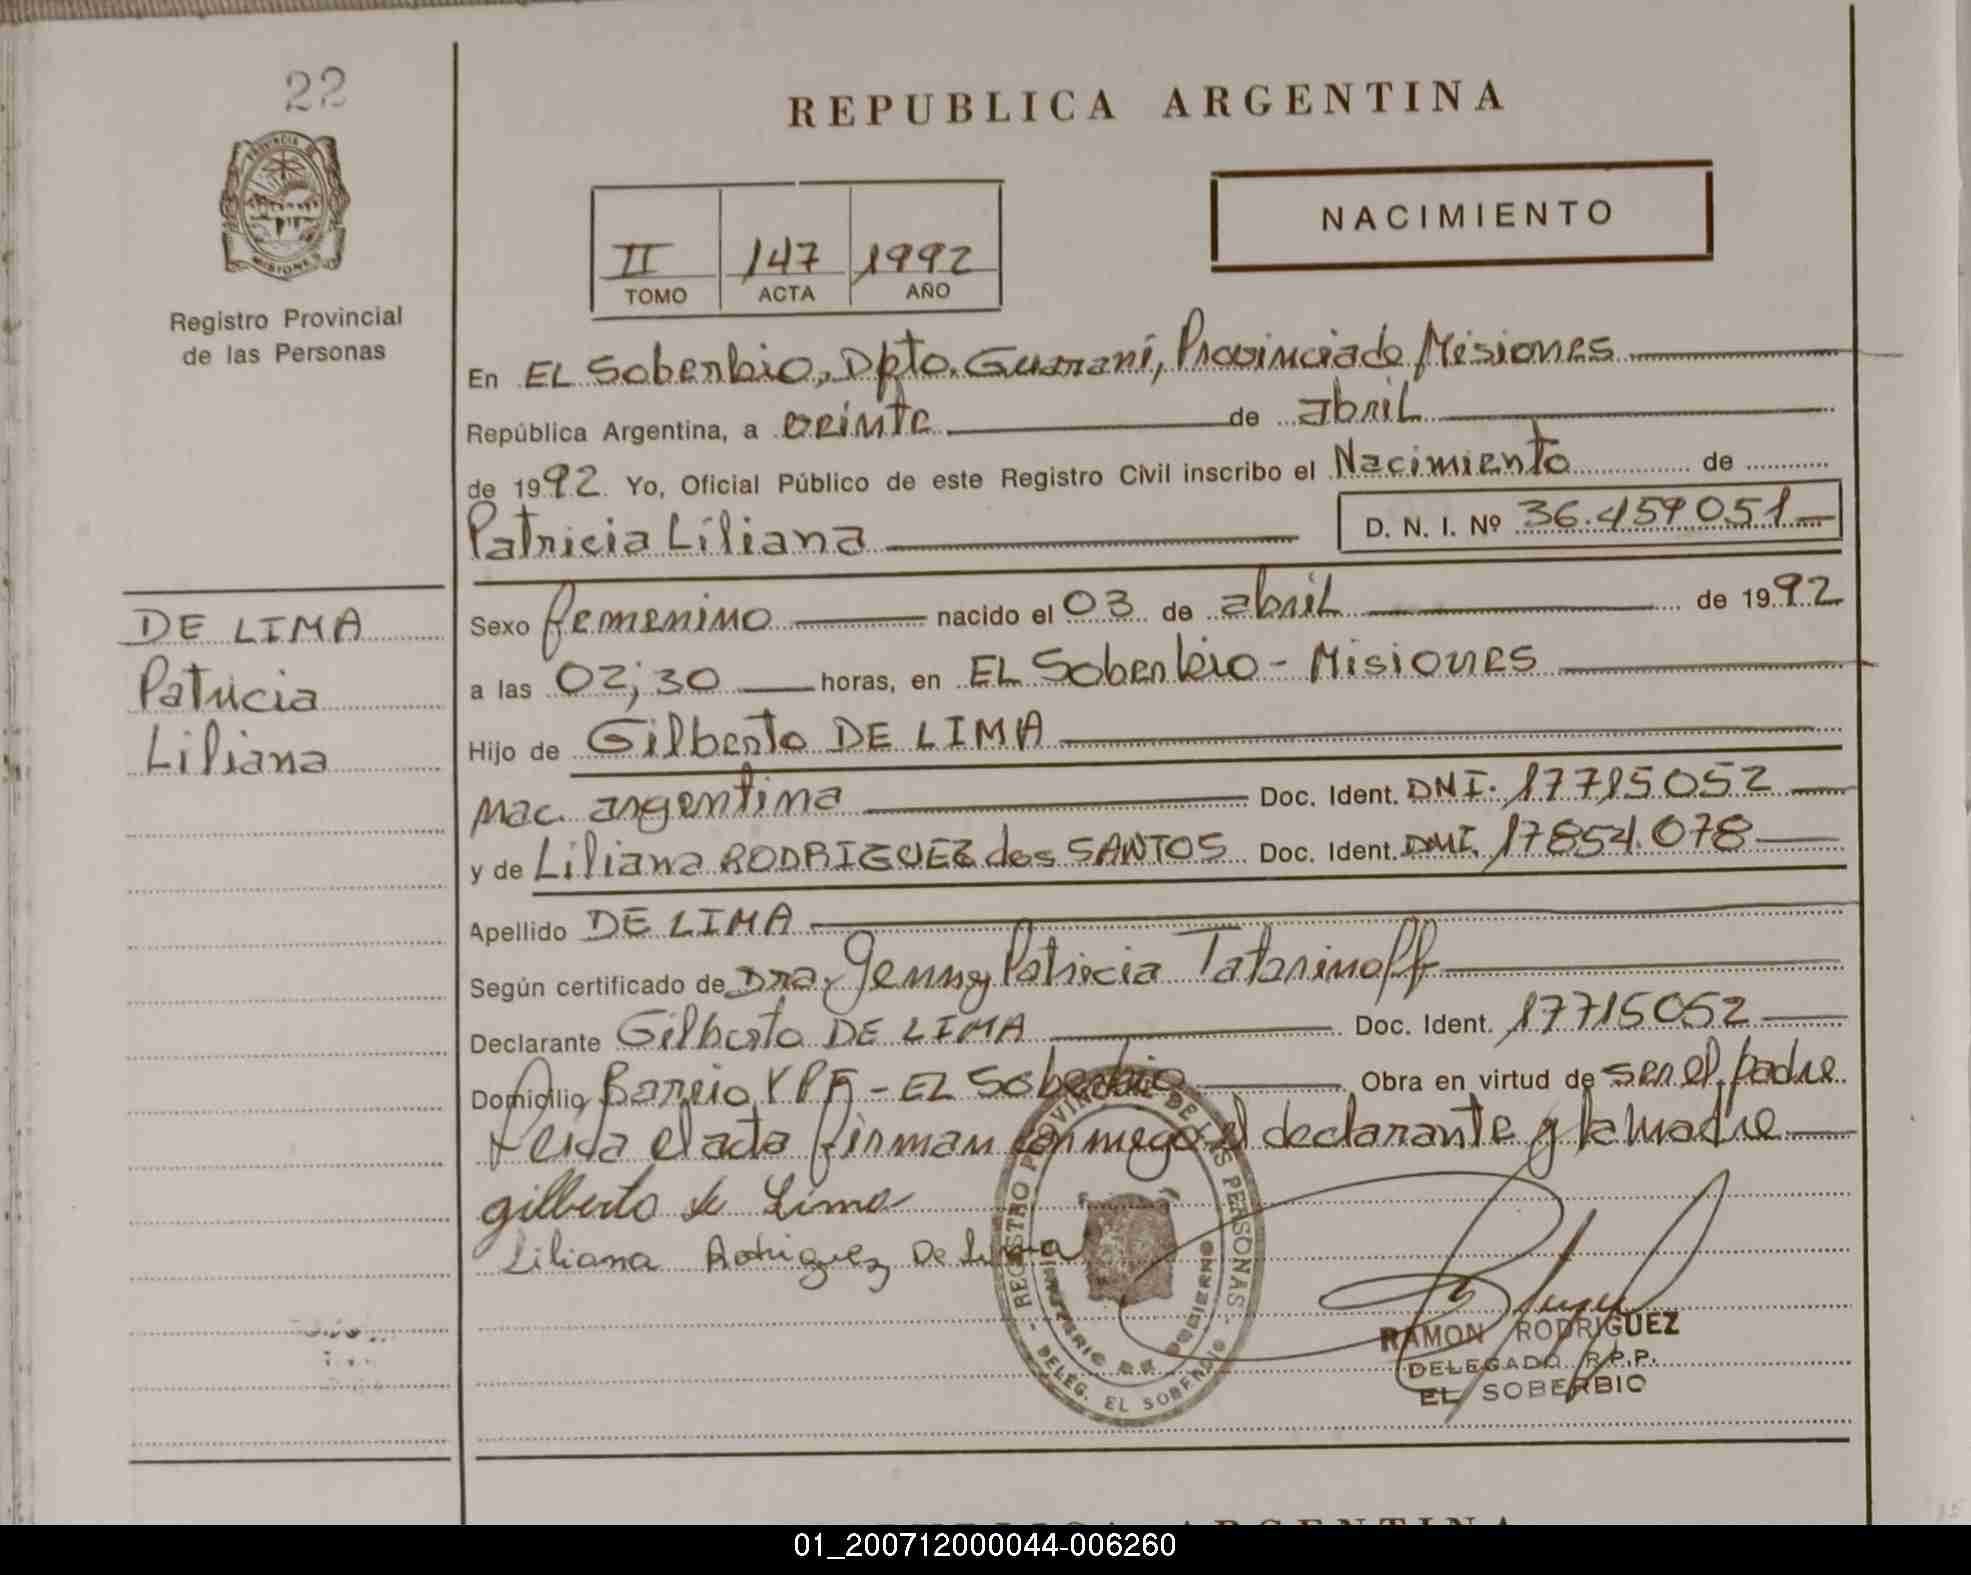 22
REPUBLICA ARGENTINA
NACIMIENTO
II 147 1992
TOMO ACTA AÑO
PROVINCIA DE
MISIONES
Registro Provincial
de las Personas
En EL Soberbio, Dpto. Guaraní, Provincia de Misiones
República Argentina, a veinte de abril
de 1992 Yo, Oficial Público de este Registro Civil inscribo el Nacimiento de
Patricia Liliana D. N. I. Nº 36.459051
DE LIMA
Patricia
Liliana
Sexo femenino nacido el 03 de abril de 1992
a las 02;30 horas, en EL Soberbio - Misiones
Hijo de Gilberto DE LIMA
nac. argentina Doc. Ident. DNI. 17715052
y de Liliana RODRIGUEZ dos SANTOS Doc. Ident. DNI. 17854.078
Apellido DE LIMA
Según certificado de Dra. Genny Patricia Tatarinoff
Declarante Gilberto DE LIMA Doc. Ident. 17715052
Domicilio Barrio YPF - EL Soberbio Obra en virtud de ser el padre
Leida el acta firman conmigo el declarante y la madre
gilberto de Lima
Liliana Rodriguez De Lima
REGISTRO PROVINCIAL DE LAS PERSONAS
MINISTERIO DE GOBIERNO
- DELEG. EL SOBERBIO -
RAMON RODRIGUEZ
DELEGADO R.P.P.
EL SOBERBIO
REPUBLICA ARGENTINA
01_200712000044-006260